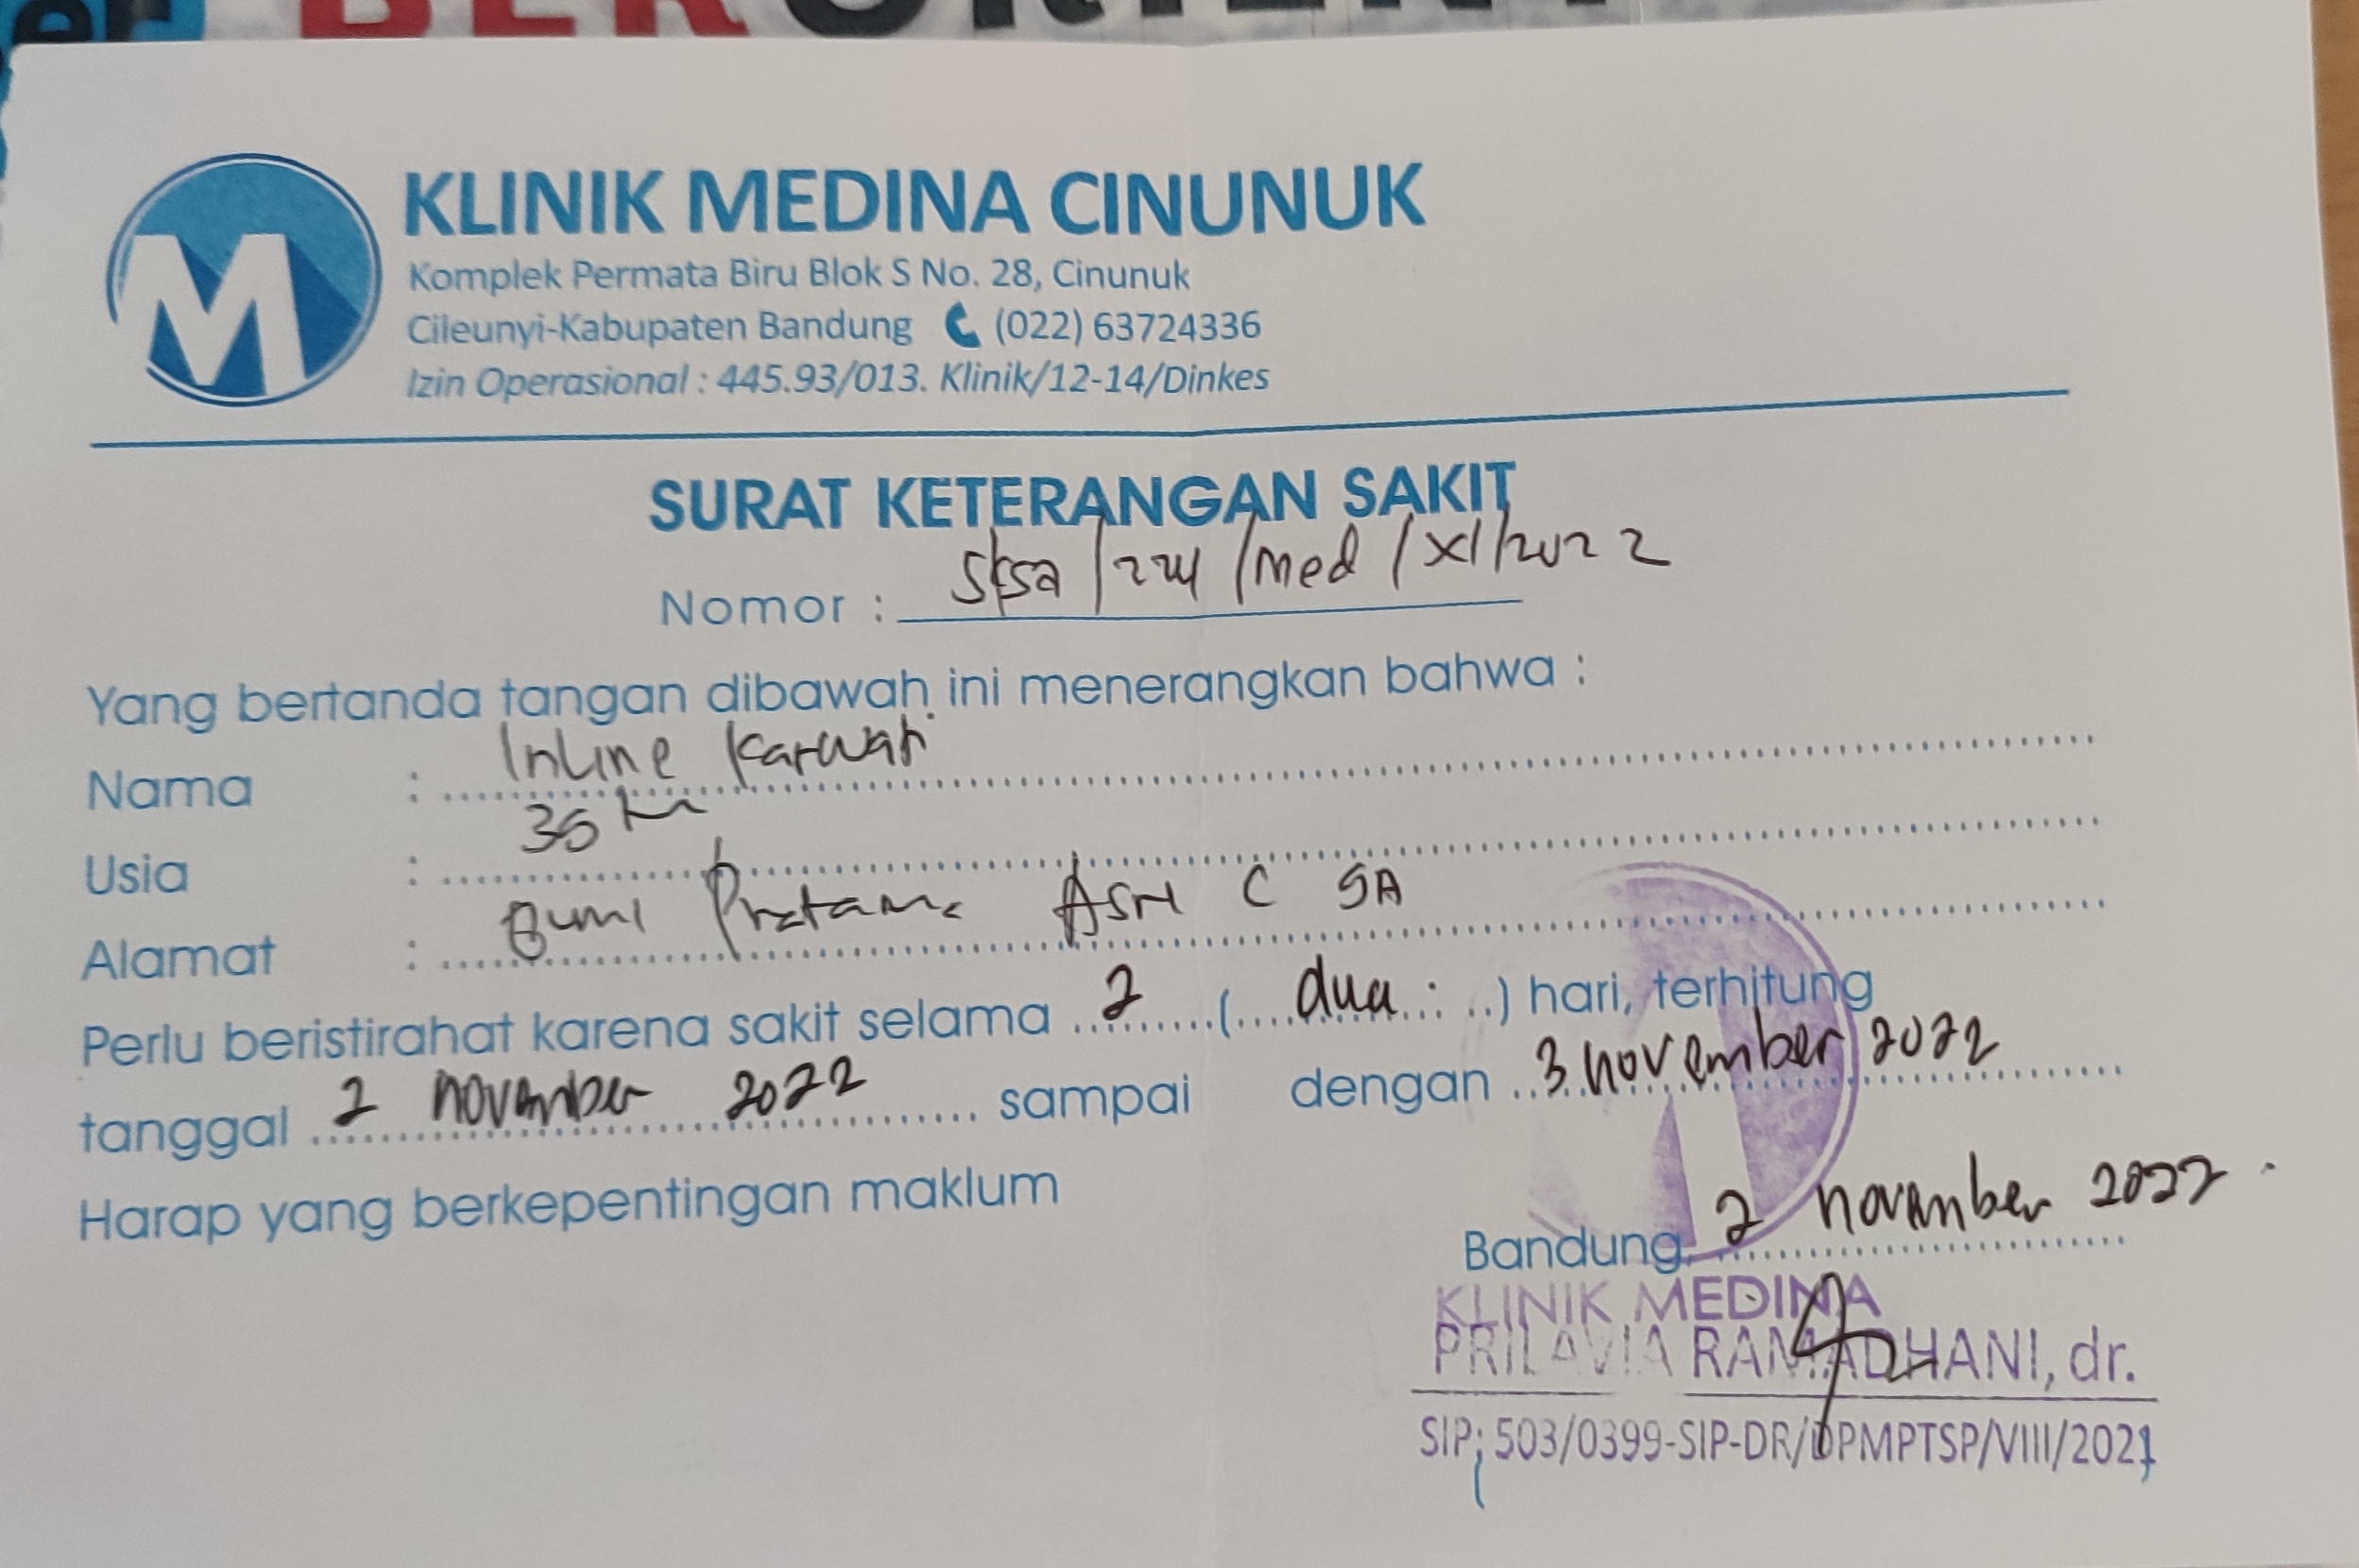 BERORIENT
KLINIK MEDINA CINUNUK
Komplek Permata Biru Blok S No. 28, Cinunuk
Cileunyi-Kabupaten Bandung (022) 63724336
Izin Operasional : 445.93/013. Klinik/12-14/Dinkes
SURAT KETERANGAN SAKIT
Nomor : Sksa /224 /Med /XI/2022
Yang bertanda tangan dibawah ini menerangkan bahwa :
Nama : Inline Karwati
Usia : 36
Alamat : Bumi Pratama Asri C 5A
Perlu beristirahat karena sakit selama 2 ( dua ) hari, terhitung
tanggal 2 november 2022 sampai dengan 3 november 2022
Harap yang berkepentingan maklum
Bandung, 2 november 2022
KLINIK MEDINA
PRILAVIA RAMADHANI, dr.
SIP; 503/0399-SIP-DR/DPMPTSP/VIII/2021